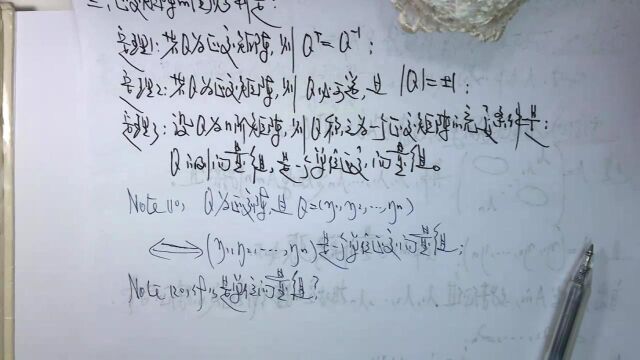 三、正交矩阵的性质与判定：
定理1：若Q为正交矩阵，则 Qᵀ=Q⁻¹；
定理2：若Q为正交矩阵，则 Q必可逆，且 |Q|=±1；
定理3：设Q为n阶矩阵，则Q称之为一个正交矩阵的充要条件是：
Q的列向量组，是一个单位正交向量组。
Note(1)、Q为正交阵，且 Q=(η₁, η₂, …, ηₙ)
⟺ (η₁, η₂, …, ηₙ)是一个单位正交向量组；
Note(2)、什么是单位向量组？